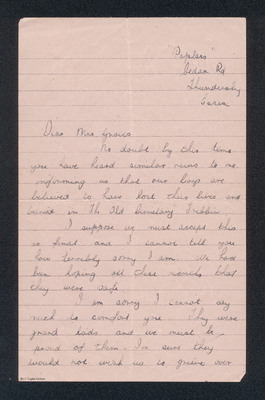 "Poplars"
Cedar Rd
Thundersley
Essex
Dear Mrs
No doubt by this time
you have heard similar news to me
informing us that our boys are
believed to have lost their lives and
buried in The Old Cemetery
I suppose we must accept this
as final and I cannot tell you
how terribly sorry I am. We have
been hoping all these months that
they were safe
I am sorry I cannot say
much to comfort you. They were
grand lads and we must be
proud of them. I'm sure they
would not wish us to grieve over